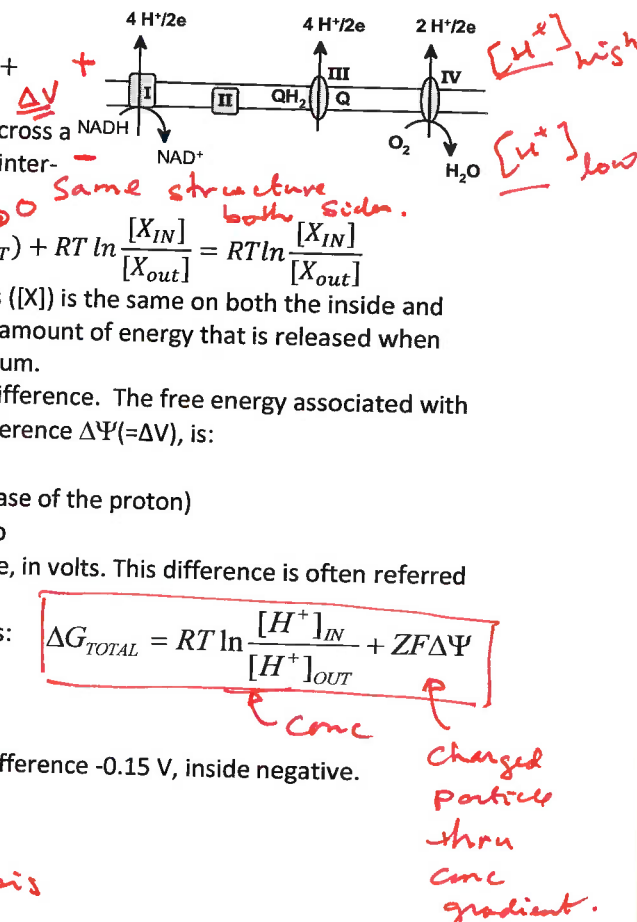 4 H⁺/2e 4 H⁺/2e 2 H⁺/2e
[H⁺] high
+ +
III IV
ΔV
I II QH₂ Q
cross a NADH
O₂
[H⁺] low
inter- − NAD⁺
H₂O
Same structure
both sides.
O
) + RT ln [X_IN]/[X_out] = RTln [X_IN]/[X_out]
([X]) is the same on both the inside and
amount of energy that is released when
um.
ifference. The free energy associated with
erence ΔΨ(=ΔV), is:
ase of the proton)
e, in volts. This difference is often referred
s: ΔG_TOTAL = RT ln [H⁺]_IN/[H⁺]_OUT + ZFΔΨ
conc
charged
particle
thru
conc
gradient.
fference -0.15 V, inside negative.